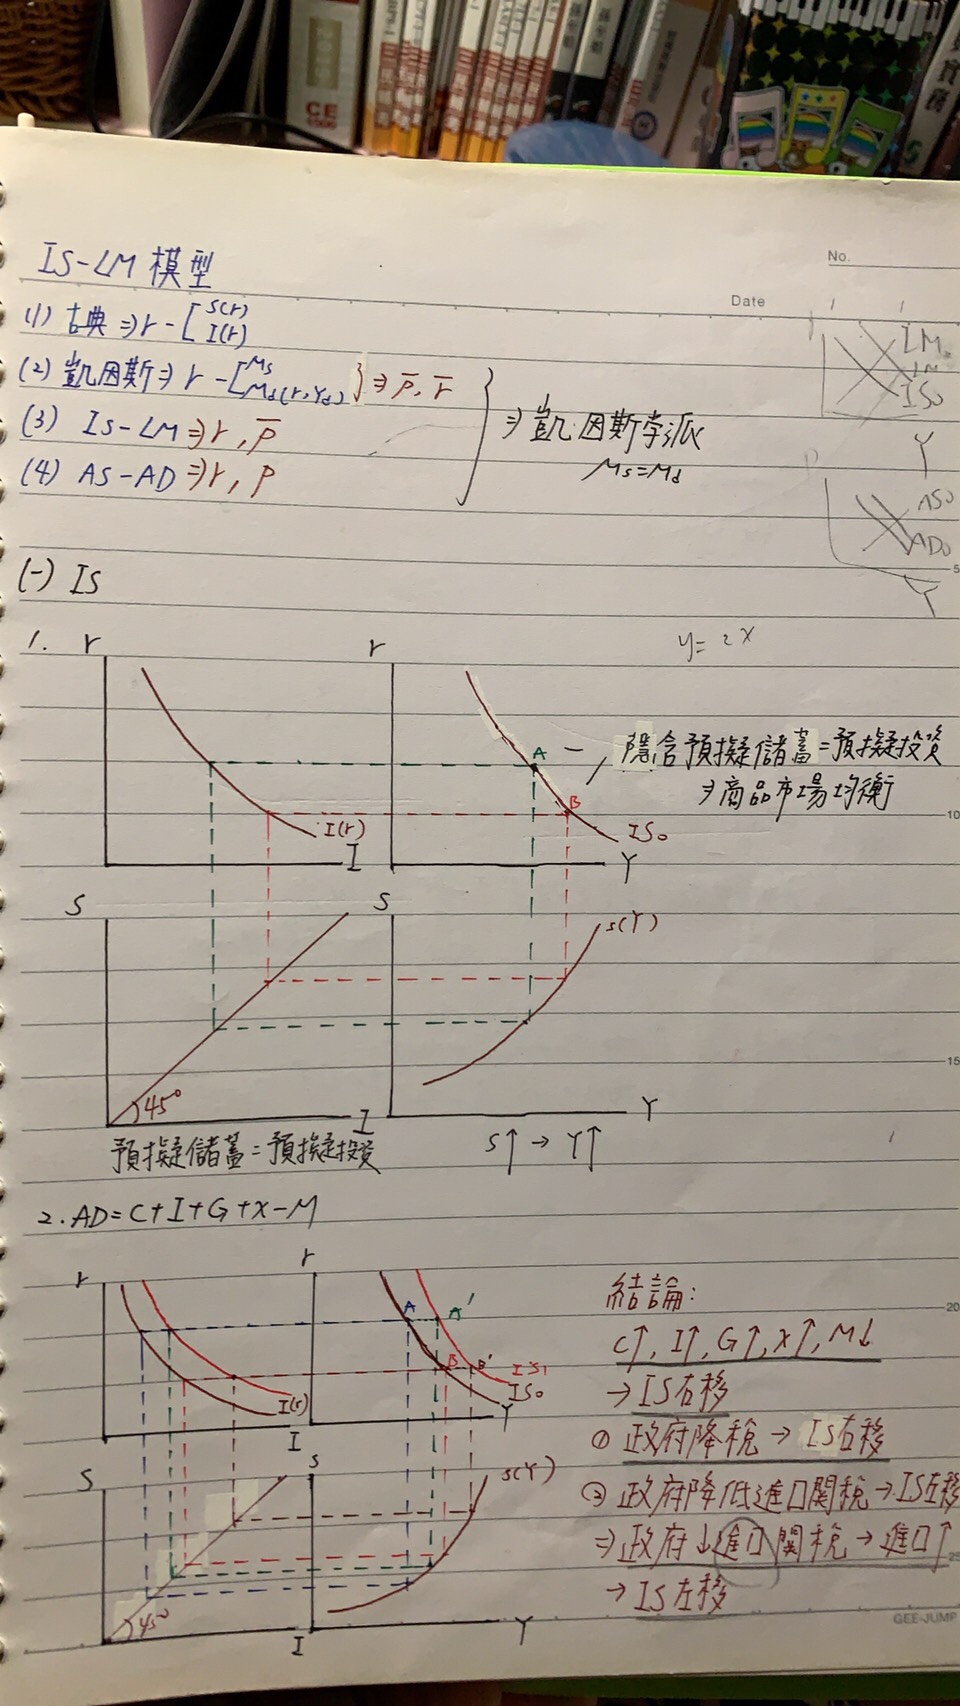 No.
Date
IS-LM 模型
(1) 古典 ⇒ r - [ S(r)
I(r)
(2) 凱因斯 ⇒ r - [ Ms
Md(r,Yd) } ⇒ P̅, r̅
(3) IS-LM ⇒ r, P̅
(4) AS-AD ⇒ r, P
⇒ 凱因斯学派
Ms=Md
LM
LM
IS₀
Y
P
AS₀
AD₀
Y
(一) IS
1.
r
I(r)
I
r
A
B
IS₀
Y
y= 2x
隱含預擬儲蓄=預擬投資
⇒ 商品市場均衡
S
45°
I
預擬儲蓄=預擬投資
S
S(Y)
Y
S↑ → Y↑
2. AD=C+I+G+X-M
r
I(r)
I
r
A
A'
B
B'
IS₁
IS₀
Y
S
45°
I
S
S(Y)
Y
結論:
C↑, I↑, G↑, X↑, M↓
→ IS右移
① 政府降稅 → IS右移
② 政府降低進口關稅 → IS左移
⇒ 政府↓進口關稅 → 進口↑
→ IS左移
5
10
15
20
25
GEE-JUMP